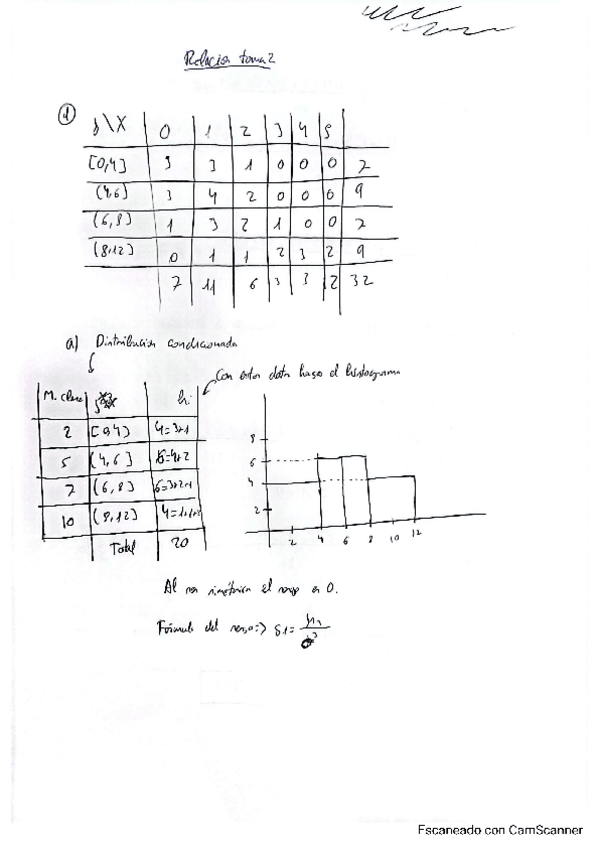 Relación tema 2
①
S\X 0 1 2 3 4 5
[0,4] 3 3 1 0 0 0 7
(4,6] 3 4 2 0 0 0 9
(6,8] 1 3 2 1 0 0 7
(8,12] 0 1 1 2 3 2 9
7 11 6 3 3 2 32
a) Distribución condicionada
Con estos datos hago el histograma
M. clase h
2 [0,4] 4=3+1
5 (4,6] 6=4+2
7 (6,8] 6=3+2+1
10 (8,12] 4=1+1+2
Total 20
8
6
4
2
2 4 6 8 10 12
Al ser simétrica el sesgo es 0.
Fórmula del sesgo:=>
Escaneado con CamScanner